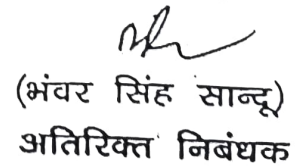 (भंवर सिंह सान्दू)
अतिरिक्त निबंधक